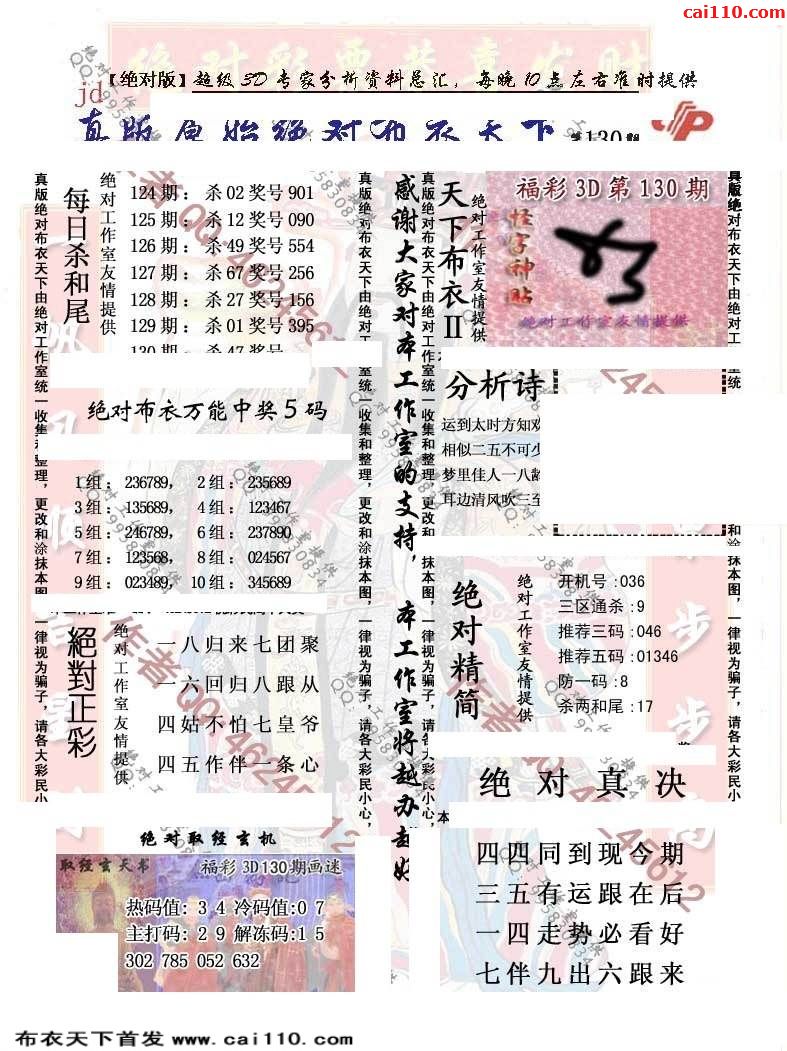 cai110.com
【绝对版】超级3D专家分析资料总汇，每晚10点左右准时提供
jd
真版原始绝对布衣天下 第130期
每日杀和尾
绝对工作室友情提供
124期：杀02奖号901
125期：杀12奖号090
126期：杀49奖号554
127期：杀67奖号256
128期：杀27奖号156
129期：杀01奖号395
130期：杀47奖号
绝对布衣万能中奖5码
1组：236789， 2组：235689
3组：135689， 4组：123467
5组：246789， 6组：237890
7组：123568， 8组：024567
9组：023489， 10组：345689
絕對正彩
绝对工作室友情提供
一八归来七团聚
一六回归八跟从
四姑不怕七皇爷
四五作伴一条心
绝对取经玄机
取经玄天书
福彩3D130期画迷
热码值：3 4 冷码值：0 7
主打码：2 9 解冻码：1 5
302 785 052 632
真版绝对布衣天下由绝对工作室统一收集和整理，更改和涂抹本图，一律视为骗子，请各大彩民小心，
感谢大家对本工作室的支持，本工作室将越办越好
真版绝对布衣天下由绝对工作室统一收集和整理，更改和涂抹本图，一律视为骗子，请各大彩民小心，
天下布衣II
绝对工作室友情提供
福彩3D第130期
怪字神贴
绝对工作室友情提供
分析诗
运到太时方知
相似二五不可少
梦里佳人一八龄
耳边清风吹三至
绝对精简
绝对工作室友情提供
开机号：036
三区通杀：9
推荐三码：046
推荐五码：01346
防一码：8
杀两和尾：17
绝对真决
四四同到现今期
三五有运跟在后
一四走势必看好
七伴九出六跟来
布衣天下首发 www.cai110.com